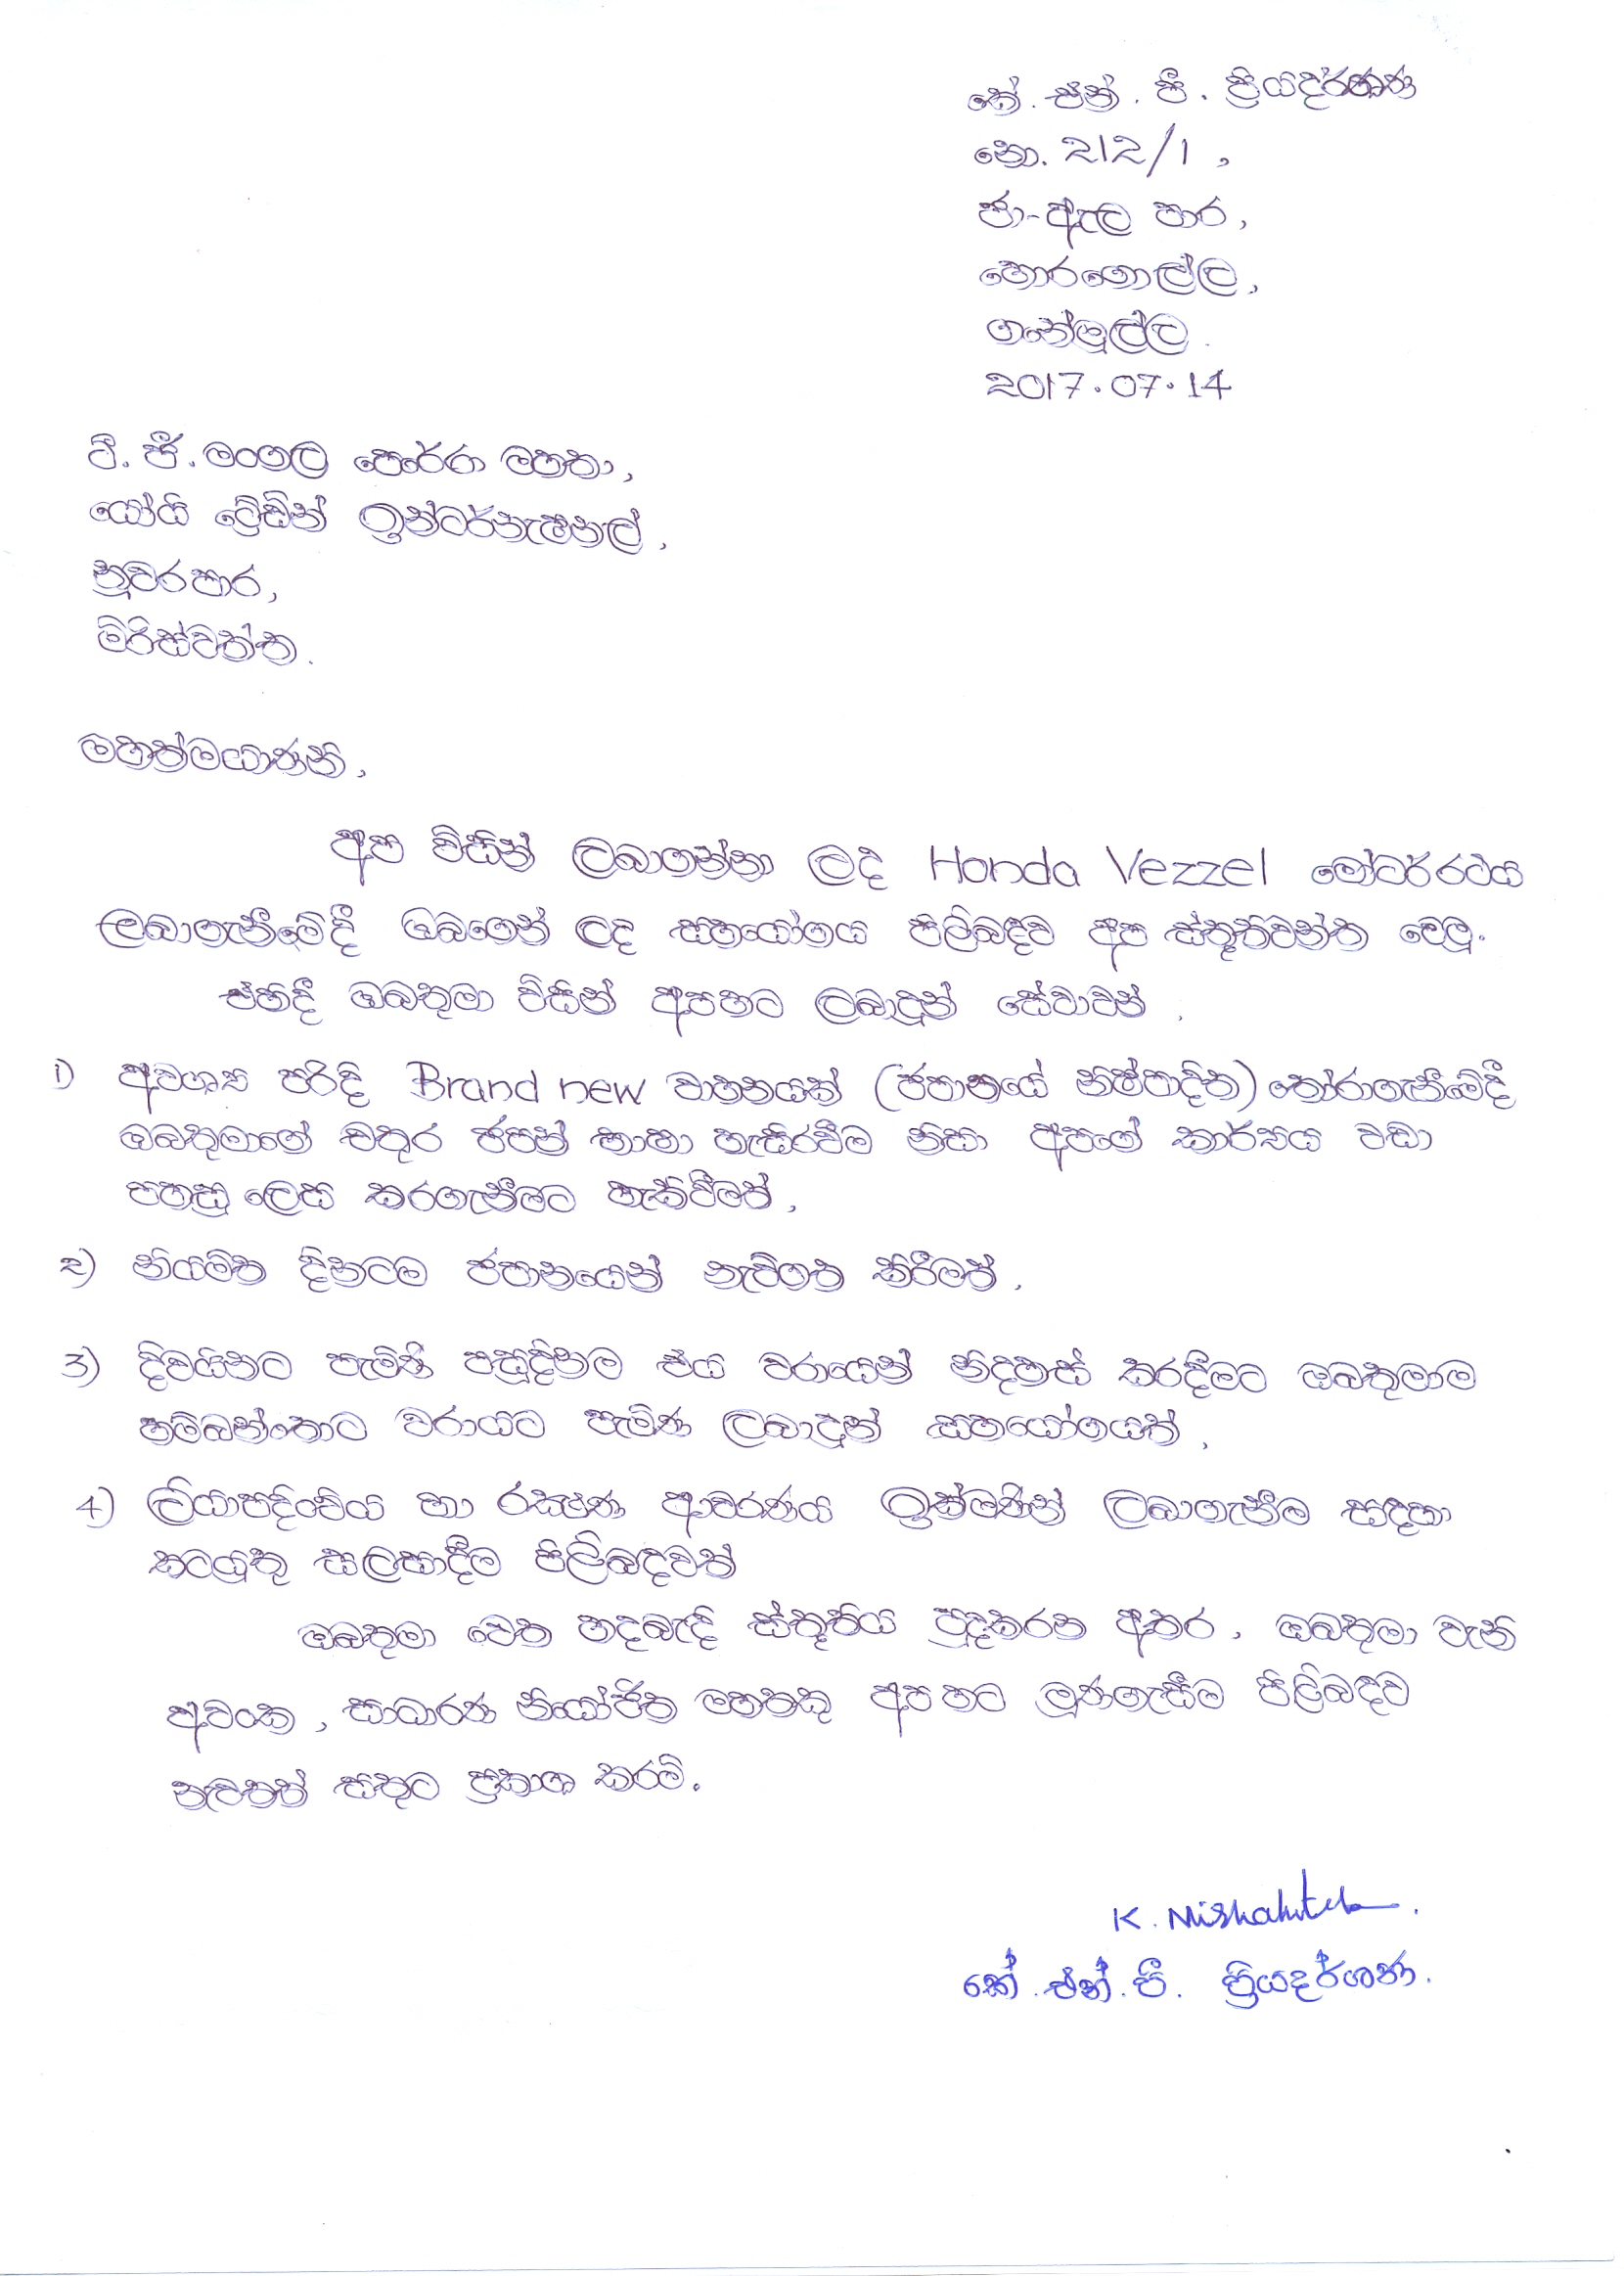 කේ. එන්. පී. ප්‍රියදර්ශන
නො. 212/1,
ජා-ඇල පාර,
හොරගොල්ල,
ගනේමුල්ල.
2017.07.14
ටී. ජී. මංගල පෙරේරා මහතා,
යෝගි ට්‍රේඩින් ඉන්ටර්නැෂනල්,
නුවරපාර,
මිරිස්වත්ත.
මහත්මයාණනි,
අප විසින් ලබාගන්නා ලද Honda Vezzel මෝටර්රථය
ලබාගැනීමේදී ඔබගෙන් ලද සහයෝගය පිලිබඳව අප ස්තූතිවන්ත වෙමු.
එහිදී ඔබතුමා විසින් අපහට ලබාදුන් සේවාවන්,
1) අවශ්‍ය පරිදි Brand new වාහනයක් (ජපානයේ නිෂ්පාදිත) තෝරාගැනීමේදී
ඔබතුමාගේ චතුර ජපන් භාෂා හැසිරවීම නිසා අපගේ කාර්යය වඩා
පහසු ලෙස කරගැනීමට හැකිවීමත්,
2) නියමිත දිනටම ජපානයෙන් නැව්ගත කිරීමත්,
3) දිවයිනට පැමිණි පසුදිනම එය වරායෙන් නිදහස් කරදීමට ඔබතුමාම
හම්බන්තොට වරායට පැමිණ ලබාදුන් සහයෝගයත්,
4) ලියාපදිංචිය හා රක්ෂණ ආවරණය ඉක්මණින් ලබාගැනීම සඳහා
කටයුතු සලසාදීම පිලිබඳවත්
ඔබතුමා වෙත හදබැඳි ස්තූතිය පුදකරන අතර, ඔබතුමා වැනි
අවංක, සාධාරණ නියෝජිත මහතකු අප හට මුණගැසීම පිලිබඳව
නැවතත් සතුට ප්‍රකාශ කරමි.
K.
කේ. එන්. පී. ප්‍රියදර්ශන.